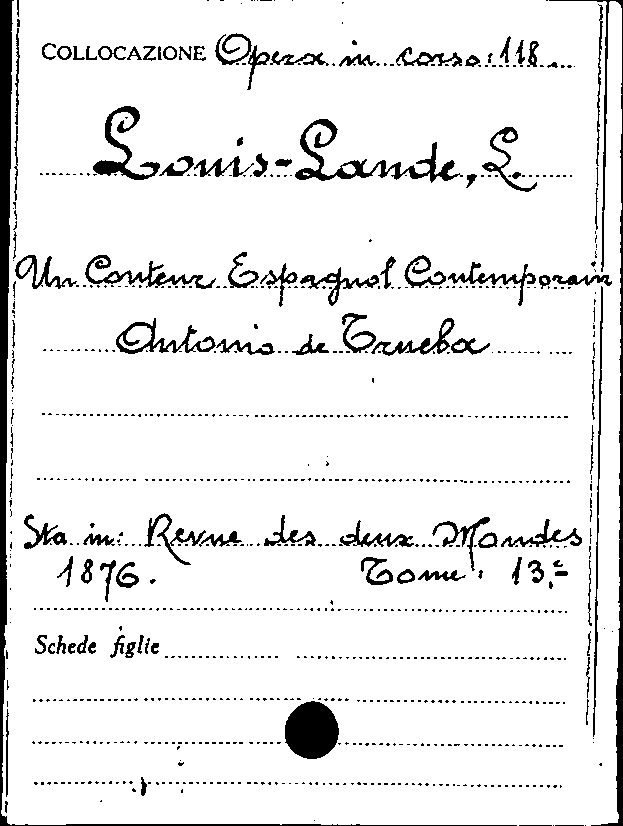 COLLOCAZIONE Opera in corso: 118.
Louis-Lande, L.
Un Conteur Espagnol Contemporain
Antonio de Trueba
Sta in: Revue des deux Mondes
1876. Tome: 13.e
Schede figlie